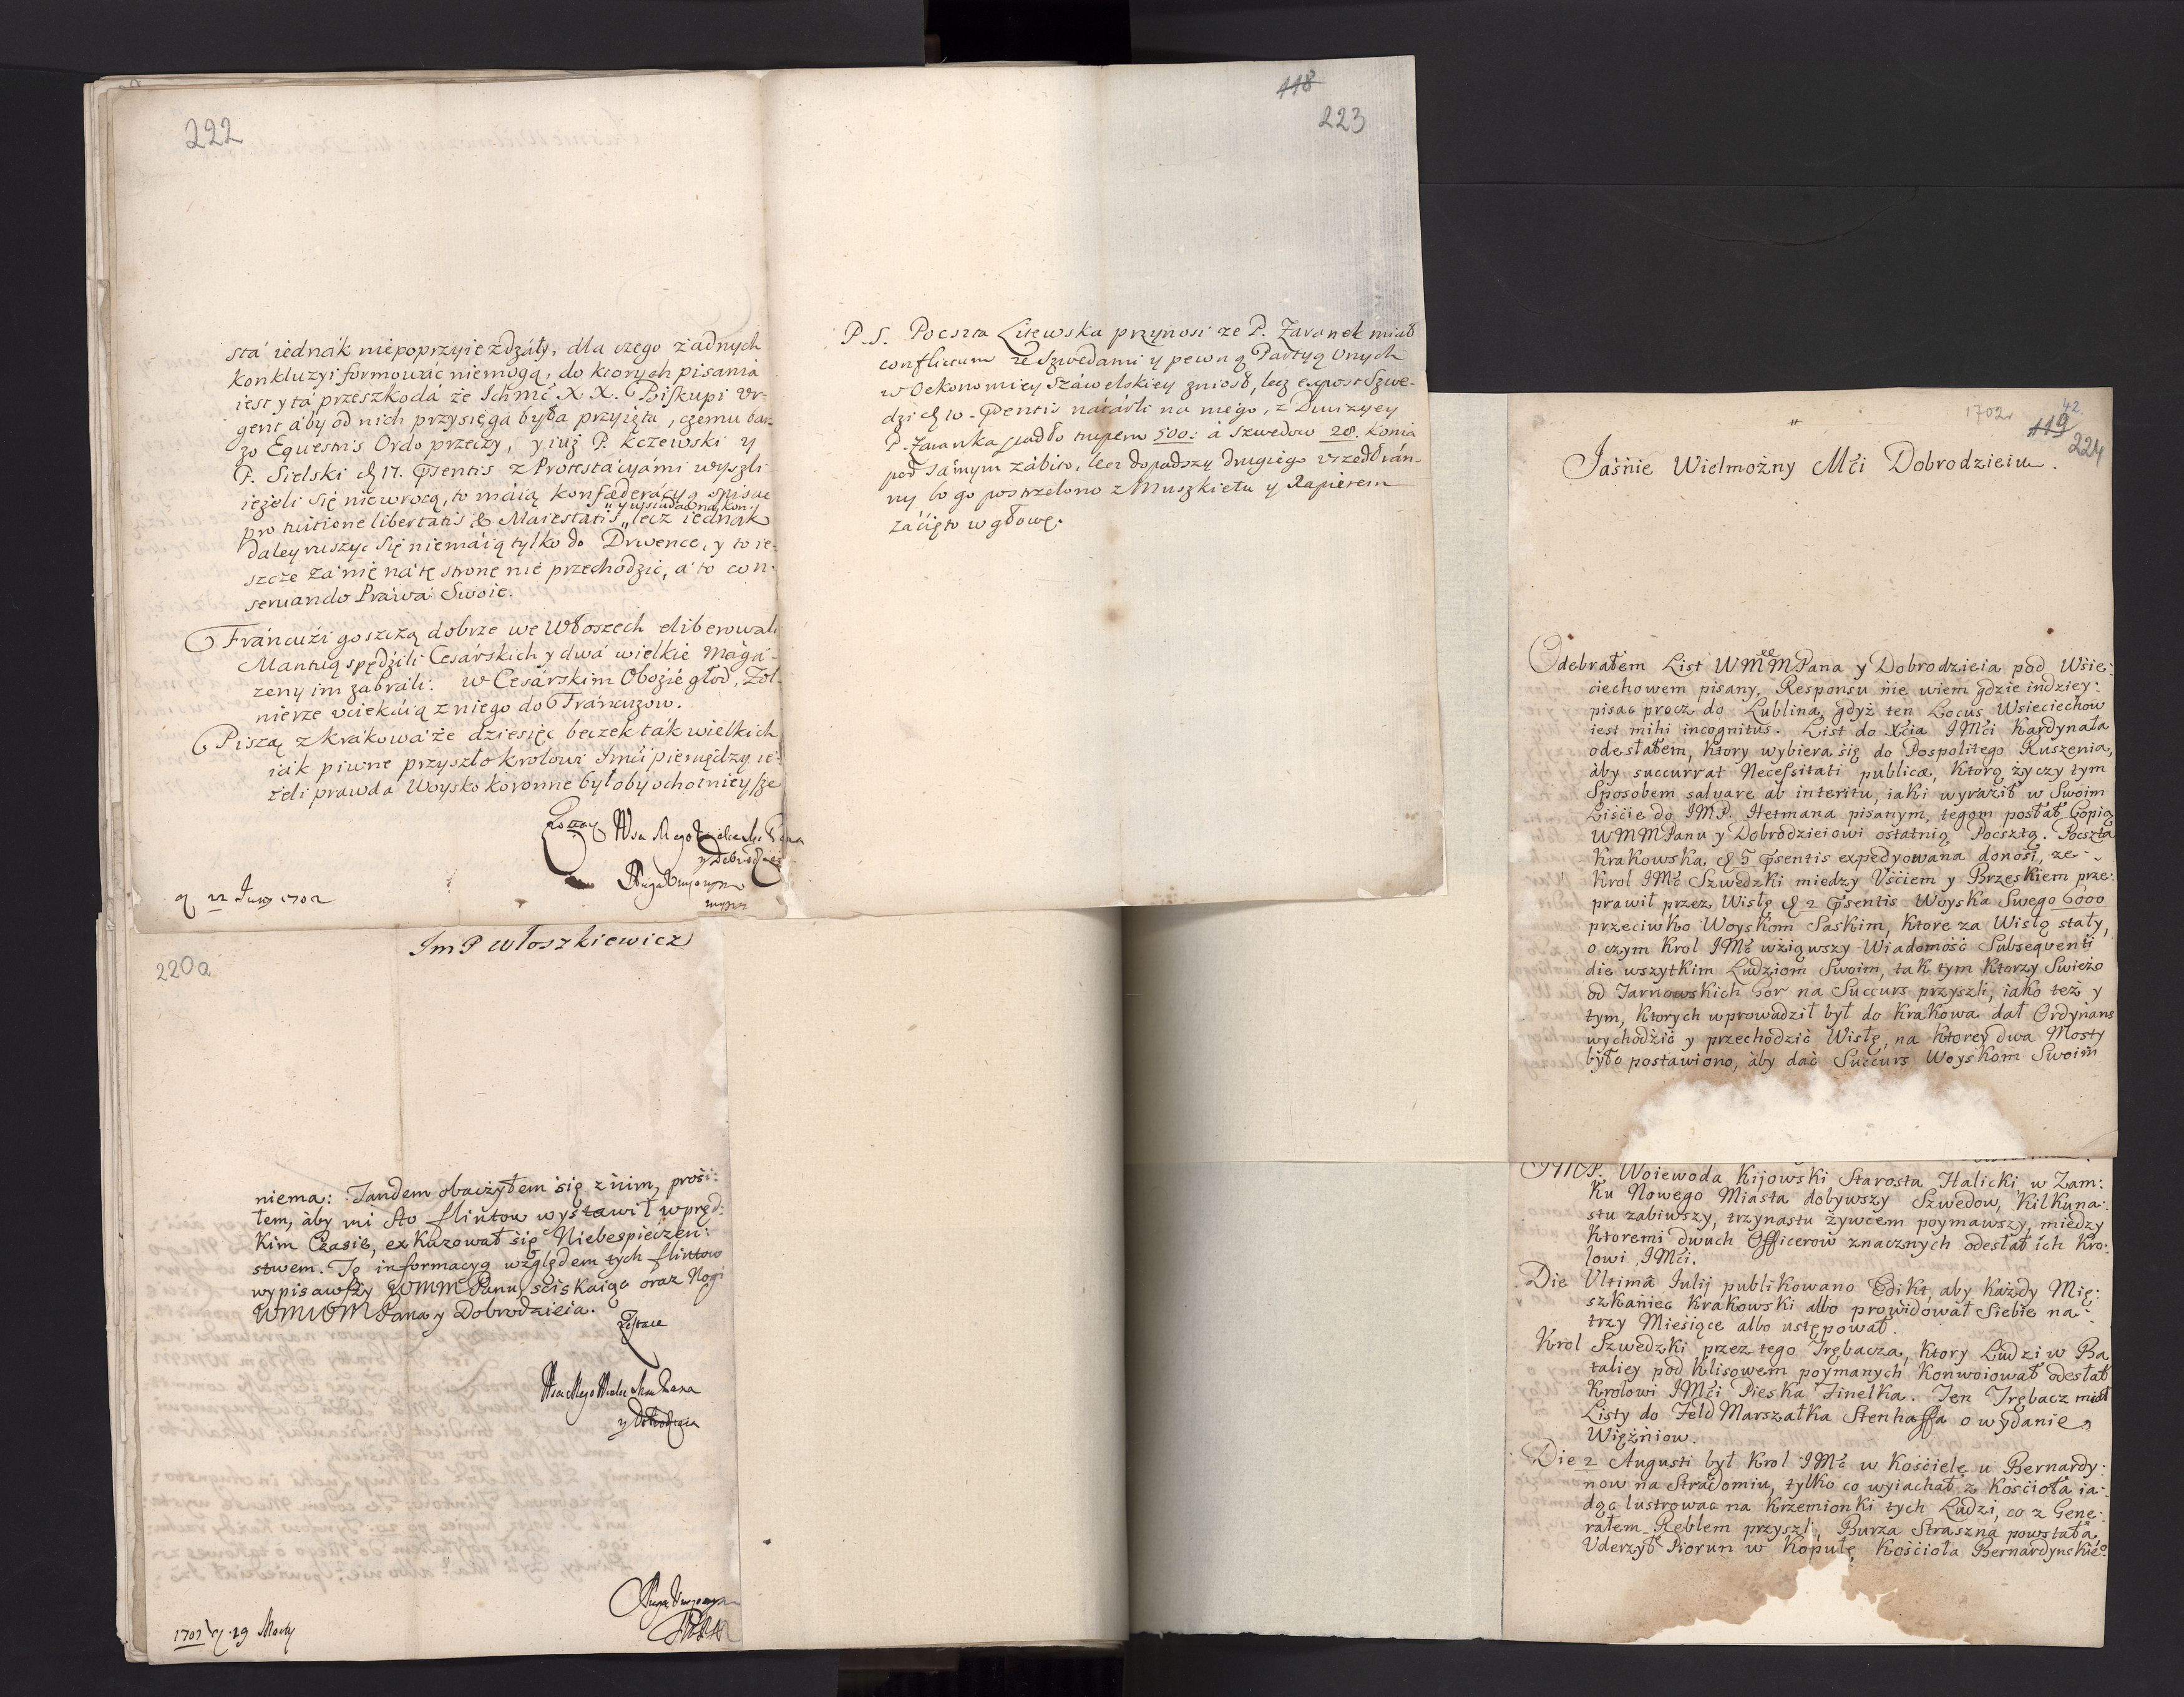 222
sta iednák niepoprzyieżdzáły, dla czego żadnych
konkluzyi formowác niemogą, do ktorych pisania
iest y tá przeszkodá że Ichmć X X. Biskupi vr-
gent áby od nich przysięga była przyięta, czemu bar-
zo Equestris Ordo przeczy, y iuż P. Kczewski y
P. Sielski 17. Psentis z Protestácyámi wyszli
ieżeli się niewrocą, to máią konfæderácyą spisác
y wsiadać na kon.
pro tuitione libertatis & Maiestatis, lecz iednák
daley ruszyc się niemáią tylko do Drwence, y to ie-
szcze zá nię ná tę stronę nie przechodzić, á to con-
seruando Práwá Swoie.
Fráncuźi goszczą dobrze we Włoszech eliberowali
Mantuą spędźili Cesárskich y dwá wielkie mágá-
zeny im zabráli: w Cesárskim Obozié głod, Żoł-
nierze vciekáią z niego do Fráncuzow.
Piszą z Krákowá że dziesięć beczek ták wielkich
iák piwne przyszło krolowi Imći pieniędzy ie-
żeli prawdá Woysko koronne byłoby ochotnieysze
Zostaię
Wm Mego Wielce Mści Pana
y Dobrodzieja
Sługa Uniżony
22 Juny 1702
118
223
P.S. Poczta Litewska przynosi że P. Zaranek miał
conflictum ze Szwedami y pewną Partyą Onych
w Oekonomiey Száwelskiey zniosł, lecz expost Szwe-
dzi 10. Psentis nátárli na niego, z Dwizyey
P. Zaranka padło trupem 500: á Szwedow 28. Konia
pod sámym zábito, lecz dopadszy drugiego vszedł rán-
ny bo go postrzelono z Muszkietu y Rapierem
záćięto w głowę.
Im P Włoszkiewicz
220a
niema: Tandem obaczyłem się z nim, prosi:
łem, áby mi sto flintow wystawił w pręd:
kim Czasie, exkuzował się Niebespieczeń:
stwem. Tę informacyą względem tych flintow
wypisawszy WMM Panu, ściskaiąc oraz Nogi
WMWM Pana y Dobrodzieia.
Zostaie
Wm Mego Wielce Mści Pana
y Dobrodzieia
Sługa Uniżony
1702 29 Marty
1702 42.
119
224
Jáśnie Wielmożny Mći Dobrodzieiu.
Odebrałem List WMM Pana y Dobrodzieia pod Wsie:
ciechowem pisany, Responsu nie wiem gdzie indziey
pisac procz do Lublina, gdyż ten Locus Wsieciechow
iest mihi incognitus. List do Xcia IMći Kardynała
odesłałem, ktory wybiera się do Pospolitego Ruszenia,
áby succurrat Necessitati publicæ, ktorą życzy tym
Sposobem salvare ab interitu, iaki wyraził w Swoim
Liście do IMP. Hetmana pisanym, tegom posłał Copią
WMMPanu y Dobrodzieiowi ostatnią Pocztą. Poczta
Krakowska 5 Psentis expedyowana donosi, ze
Krol IMć Szwedzki miedzy Vściem y Brzeskiem prze:
prawił przez Wisłę 2 Psentis Woyska Swego 6000
przeciwko Woyskom Saskim, ktore za Wisłą stały,
o czym Krol IMć wziąwszy Wiadomość Subsequenti
die wszytkim Ludziom Swoim, tak tym ktorzy Swieżo
od Tarnowskich Gor na Succurs przyszli, iako też y
tym, ktorych wprowadził był do Krakowa dał Ordynans
wychodzić y przechodzić Wisłę, na ktorey dwa Mosty
było postawiono, áby dać Succurs Woyskom Swoim
IMP. Woiewoda Kijowski Starosta Halicki w Zam:
ku Nowego Miasta dobywszy Szwedow, kilkuna:
stu zabiwszy, trzynastu żywcem poymawszy, miedzy
ktoremi dwuch Officerow znacznych odesłał ich Kro:
lowi IMći.
Die Ultima Iulij publikowano Edikt, aby każdy Mię:
szkaniec Krakowski albo prowidował Siebie na
trzy Miesiące albo ustępował.
Krol Szwedzki przez tego Trębacza, ktory Ludzi w Ba
taliey pod Klisowem poymanych konwoiował odesłał
Krolowi IMći Pieska Finelka. Ten Trębacz miał
Listy do Feld Marszałka Stenhaffa o wydanie
Więźniow.
Die 2 Augusti był Krol IMć w Kościele u Bernardy:
now na Stradomiu, tylko co wyiachał z Kościoła ia:
dąc lustrowac na Krzemionki tych Ludzi, co z Gene:
rałem Reblem przyszli, Burza Straszna powstała
Uderzył Piorun w Kopułę Kościoła Bernardynskiego